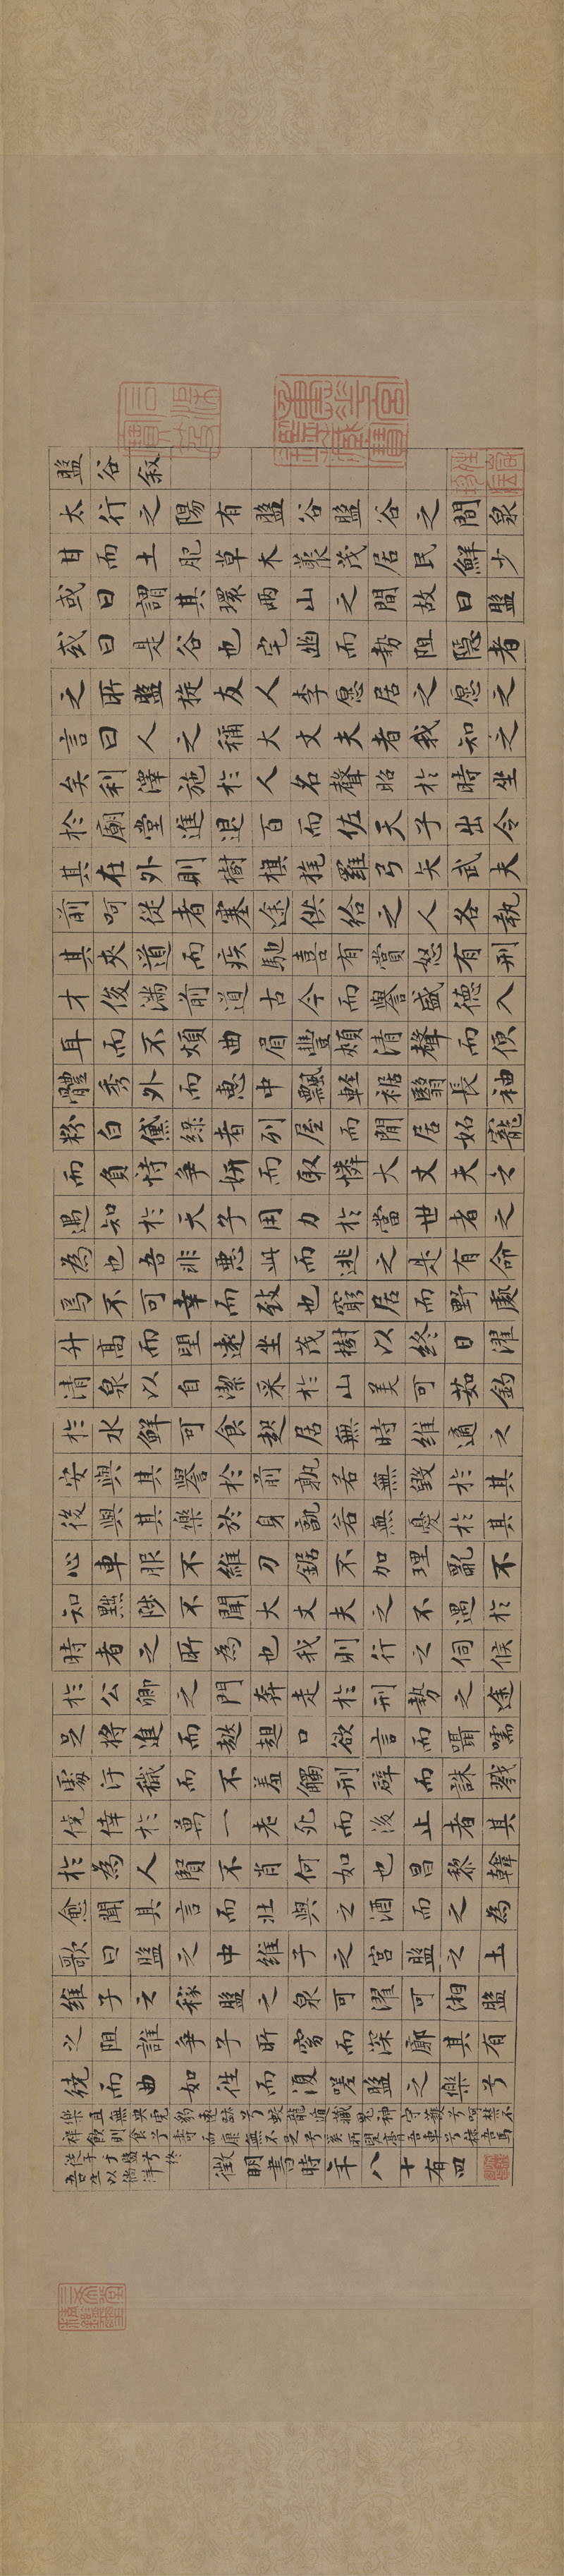 盤谷敘
太行之陽有盤谷盤谷之間泉
甘而土肥草木叢茂居民鮮少
或曰謂其環兩山之間故曰盤
或曰是谷也宅幽而勢阻隱者
之所盤旋友人李愿居之愿之
言曰人之稱大丈夫者我知之
矣利澤施於人名聲昭於時坐
於廟堂進退百而佐天子出令
其在外則樹旗旄羅弓矢武夫
前呵從者塞途供給之人各執
其夾道而疾馳喜有賞怒有刑
才俊滿前道古今而譽盛德入
耳而不煩曲眉豐頰清聲而便
體秀外而惠中飄輕裾翳長袖
粉白黛綠者列屋而閒居妬寵
而負恃爭妍而取憐大丈夫之
遇知於天子用力於當世者之
為也吾非惡此而逃之是有命
焉不可幸而致也窮居而野處
升高而望遠坐茂樹以終日濯
清泉以自潔采於山美可茹釣
於水鮮可食起居無時維適之
安與其譽於前孰若無毀於其
後與其樂於身孰若無憂於其
心車服不維刀鋸不加理亂不
知黜陟不聞大丈夫之不遇於
時者之所為也我則行之伺候
於公卿之門奔走於刑勢之途
足將進而趑趄口欲言而囁嚅
處汙穢而不羞觸刑辟而誅戮
僥倖於萬一老死而後止者其
於為人賢不肖何如也昌黎韓
愈聞其言而壯與之酒而之為
歌曰盤之中維子之宮盤之土
維子之稼盤之泉可濯可湘盤
之阻誰爭子所窈而深廓其有
繞而曲如往而復嗟盤之樂兮
樂且無央虎豹遠跡兮蛟龍遁藏鬼神守護兮呵禁不
祥飲則食兮壽而康無不足兮奚所望膏吾車兮秣吾馬
從子于盤兮終
吾生以徜徉
徵明書時年八十有四